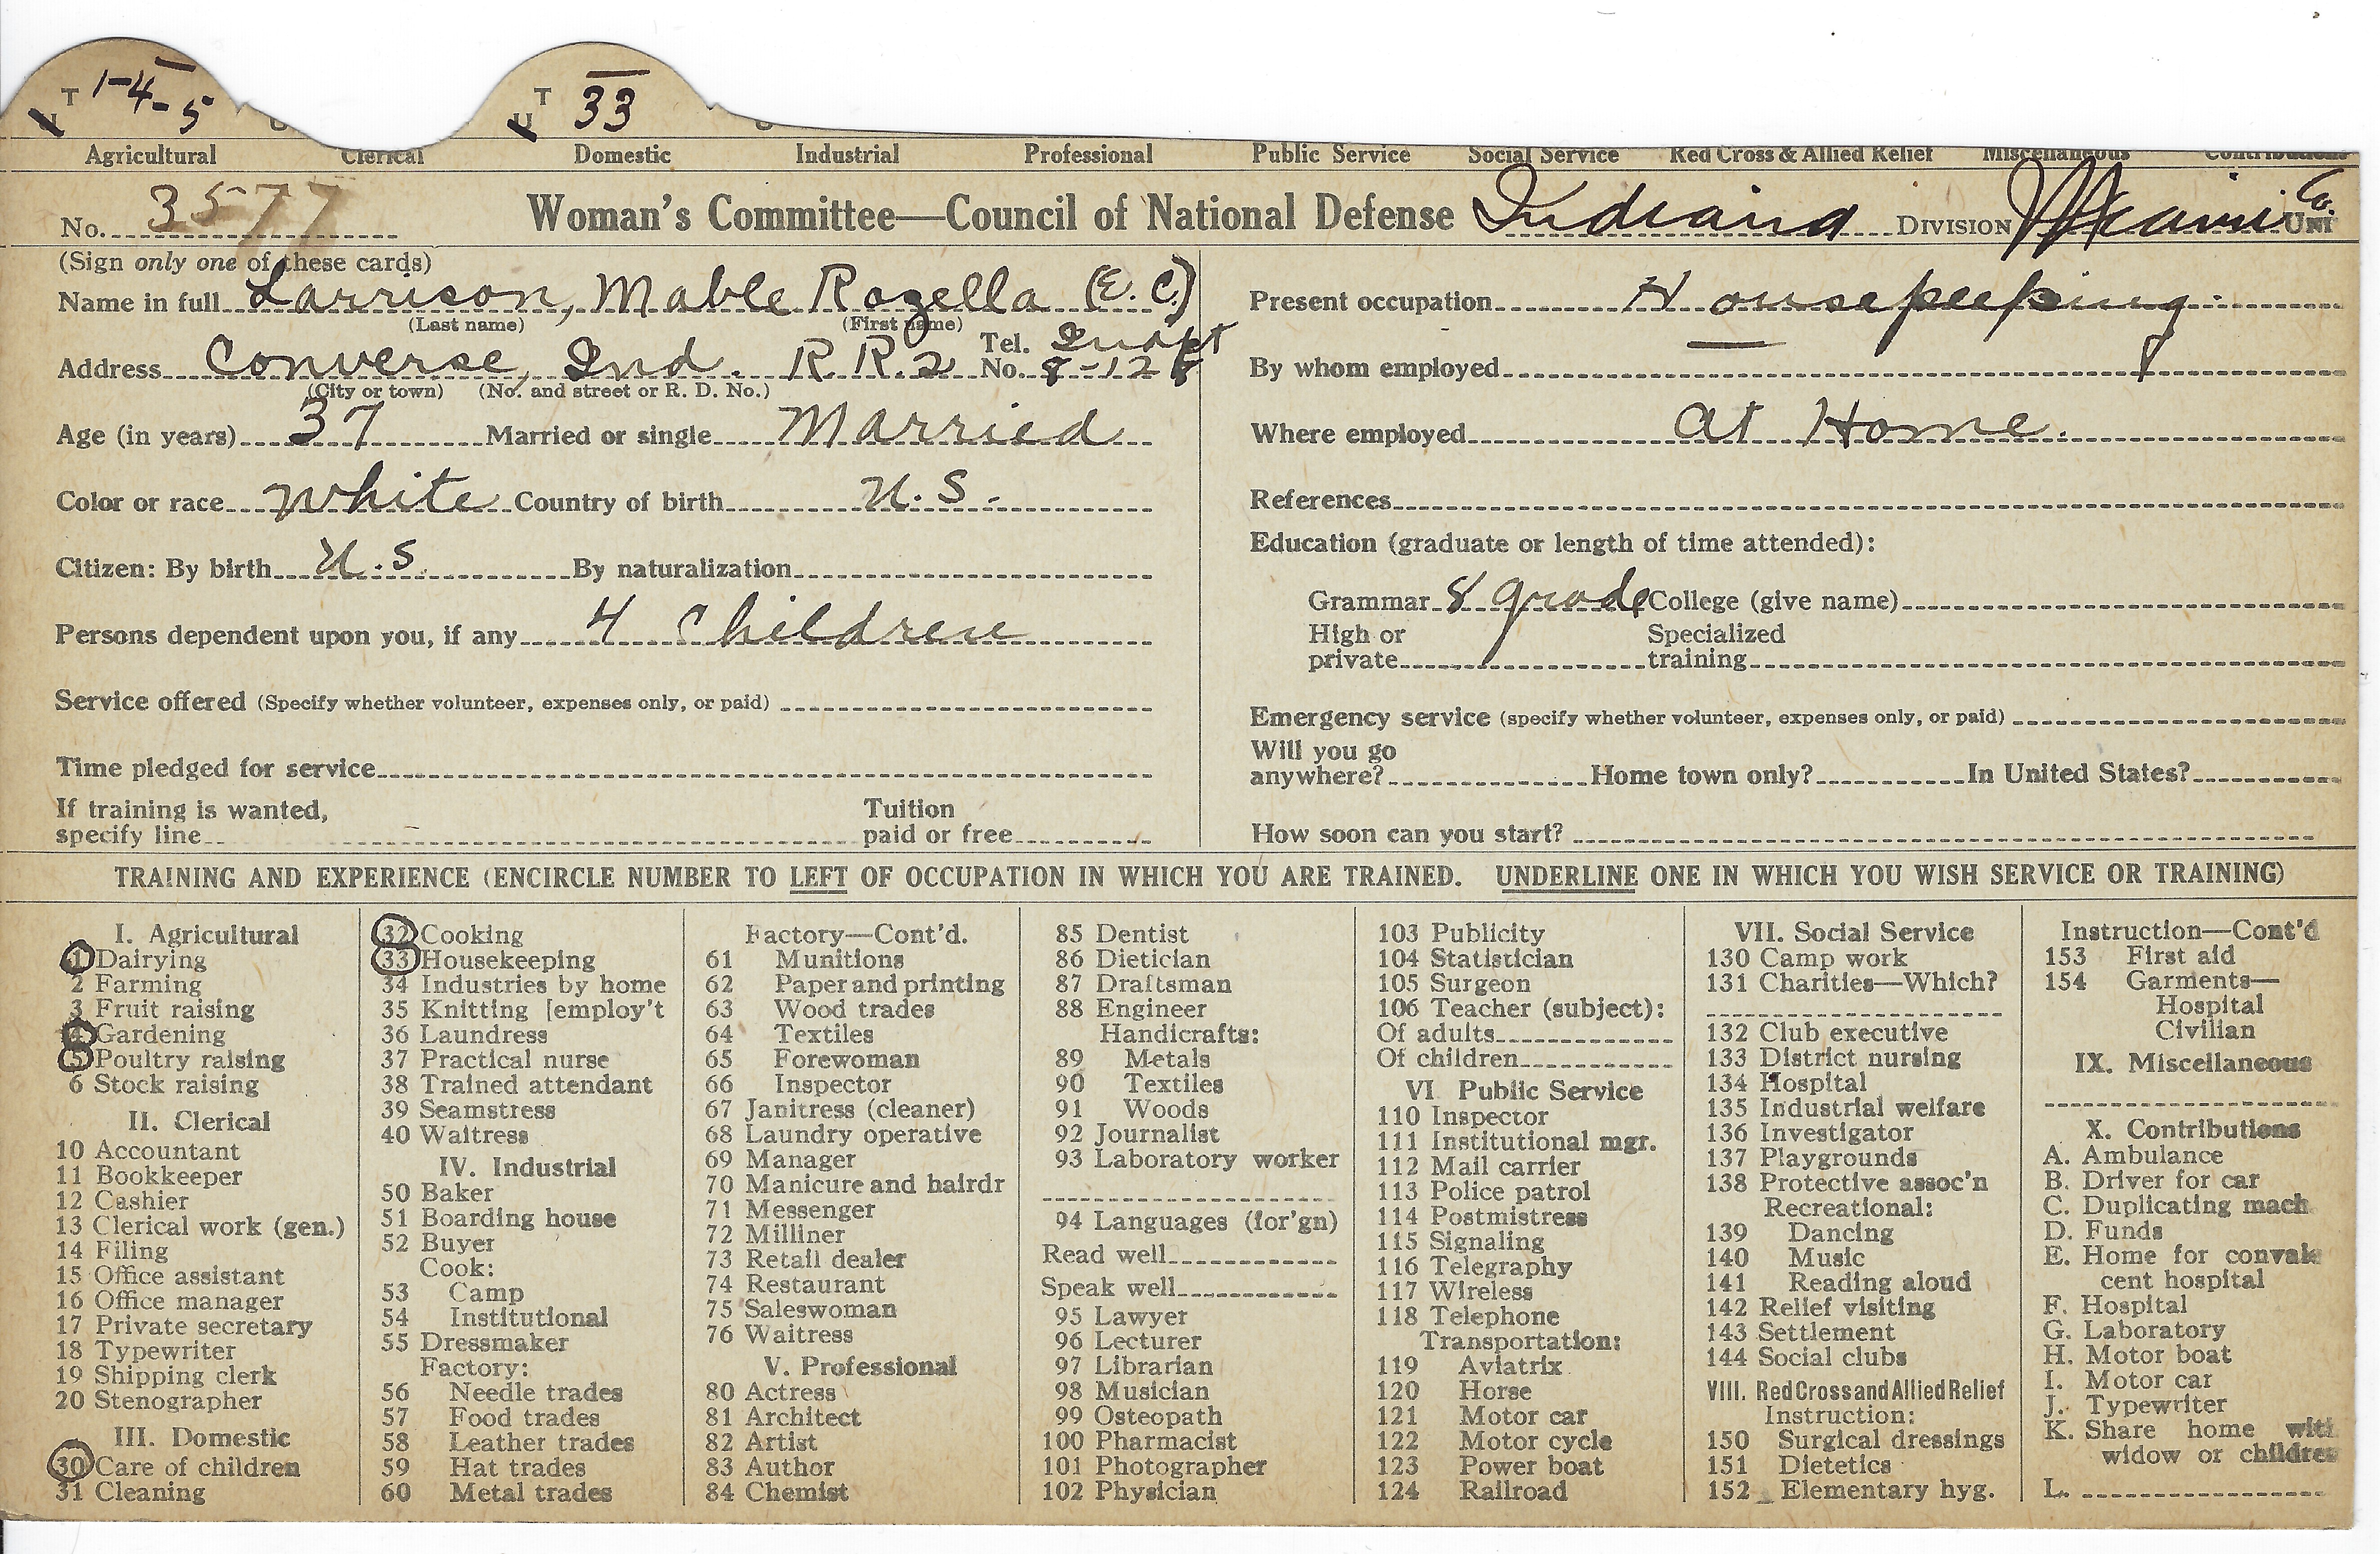 T 1-4-5 T 33
U U
Agricultural Clerical Domestic Industrial Professional Public Service Social Service Red Cross & Allied Relief Miscellaneous Contributions
No. 3577 Woman's Committee—Council of National Defense Indiana DIVISION Miami Co. UNIT
(Sign only one of these cards)
Name in full Larrison, Mable Rozella (E. C.)
(Last name) (First name)
Address Converse, Ind. R.R.2 Tel. No. 8-12
(City or town) (No. and street or R. D. No.)
Age (in years) 37 Married or single Married
Color or race White Country of birth U.S.
Citizen: By birth U.S. By naturalization
Persons dependent upon you, if any 4 Children
Service offered (Specify whether volunteer, expenses only, or paid)
Time pledged for service
If training is wanted, specify line Tuition paid or free
Present occupation Housekeeping
By whom employed —
Where employed at Home.
References
Education (graduate or length of time attended):
Grammar 8 grade College (give name)
High or private Specialized training
Emergency service (specify whether volunteer, expenses only, or paid)
Will you go anywhere? Home town only? In United States?
How soon can you start?
TRAINING AND EXPERIENCE (ENCIRCLE NUMBER TO LEFT OF OCCUPATION IN WHICH YOU ARE TRAINED. UNDERLINE ONE IN WHICH YOU WISH SERVICE OR TRAINING)
I. Agricultural
1 Dairying
2 Farming
3 Fruit raising
4 Gardening
5 Poultry raising
6 Stock raising
II. Clerical
10 Accountant
11 Bookkeeper
12 Cashier
13 Clerical work (gen.)
14 Filing
15 Office assistant
16 Office manager
17 Private secretary
18 Typewriter
19 Shipping clerk
20 Stenographer
III. Domestic
30 Care of children
31 Cleaning
32 Cooking
33 Housekeeping
34 Industries by home
35 Knitting [employ't
36 Laundress
37 Practical nurse
38 Trained attendant
39 Seamstress
40 Waitress
IV. Industrial
50 Baker
51 Boarding house
52 Buyer
Cook:
53 Camp
54 Institutional
55 Dressmaker
Factory:
56 Needle trades
57 Food trades
58 Leather trades
59 Hat trades
60 Metal trades
Factory—Cont'd.
61 Munitions
62 Paper and printing
63 Wood trades
64 Textiles
65 Forewoman
66 Inspector
67 Janitress (cleaner)
68 Laundry operative
69 Manager
70 Manicure and hairdr
71 Messenger
72 Milliner
73 Retail dealer
74 Restaurant
75 Saleswoman
76 Waitress
V. Professional
80 Actress
81 Architect
82 Artist
83 Author
84 Chemist
85 Dentist
86 Dietician
87 Draftsman
88 Engineer
Handicrafts:
89 Metals
90 Textiles
91 Woods
92 Journalist
93 Laboratory worker
94 Languages (for'gn)
Read well
Speak well
95 Lawyer
96 Lecturer
97 Librarian
98 Musician
99 Osteopath
100 Pharmacist
101 Photographer
102 Physician
103 Publicity
104 Statistician
105 Surgeon
106 Teacher (subject):
Of adults
Of children
VI Public Service
110 Inspector
111 Institutional mgr.
112 Mail carrier
113 Police patrol
114 Postmistress
115 Signaling
116 Telegraphy
117 Wireless
118 Telephone
Transportation:
119 Aviatrix
120 Horse
121 Motor car
122 Motor cycle
123 Power boat
124 Railroad
VII. Social Service
130 Camp work
131 Charities—Which?
132 Club executive
133 District nursing
134 Hospital
135 Industrial welfare
136 Investigator
137 Playgrounds
138 Protective assoc'n
Recreational:
139 Dancing
140 Music
141 Reading aloud
142 Relief visiting
143 Settlement
144 Social clubs
VIII. Red Cross and Allied Relief
Instruction:
150 Surgical dressings
151 Dietetics
152 Elementary hyg.
Instruction—Cont'd
153 First aid
154 Garments—
Hospital
Civilian
IX. Miscellaneous
X. Contributions
A. Ambulance
B. Driver for car
C. Duplicating mach
D. Funds
E. Home for convales
cent hospital
F. Hospital
G. Laboratory
H. Motor boat
I. Motor car
J. Typewriter
K. Share home with
widow or children
L.